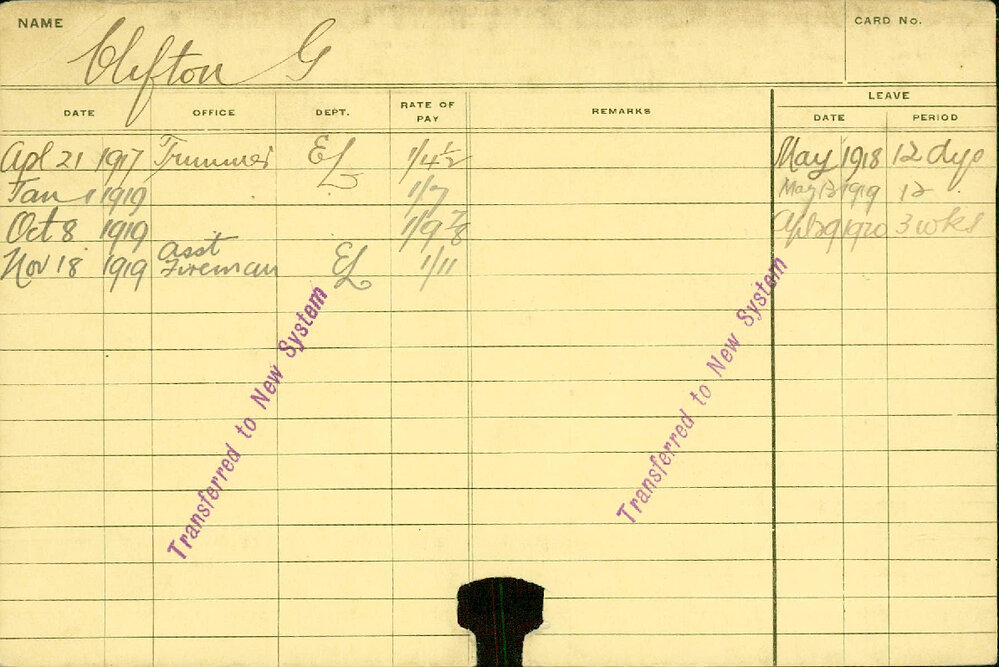 NAME
CARD No.
Clifton G
DATE OFFICE DEPT. RATE OF PAY REMARKS LEAVE
DATE PERIOD
Apl 21 1917 Trimmer EL 1/4 1/2 May 1918 12 dys
Jan 1 1919 1/7 May 12 1919 12
Oct 8 1919 1/9 7/8 Apl 29 1920 3 wks
Nov 18 1919 Asst Fireman EL 1/11
Transferred to New System
Transferred to New System